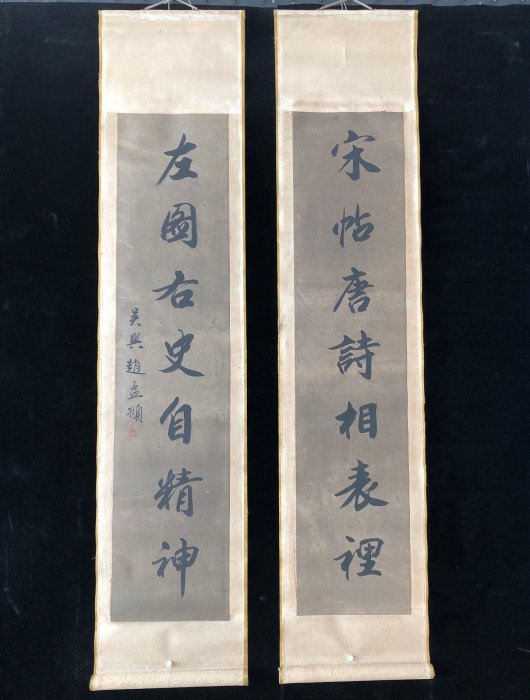 宋帖唐詩相表裡
左圖右史自精神
吴興趙孟頫